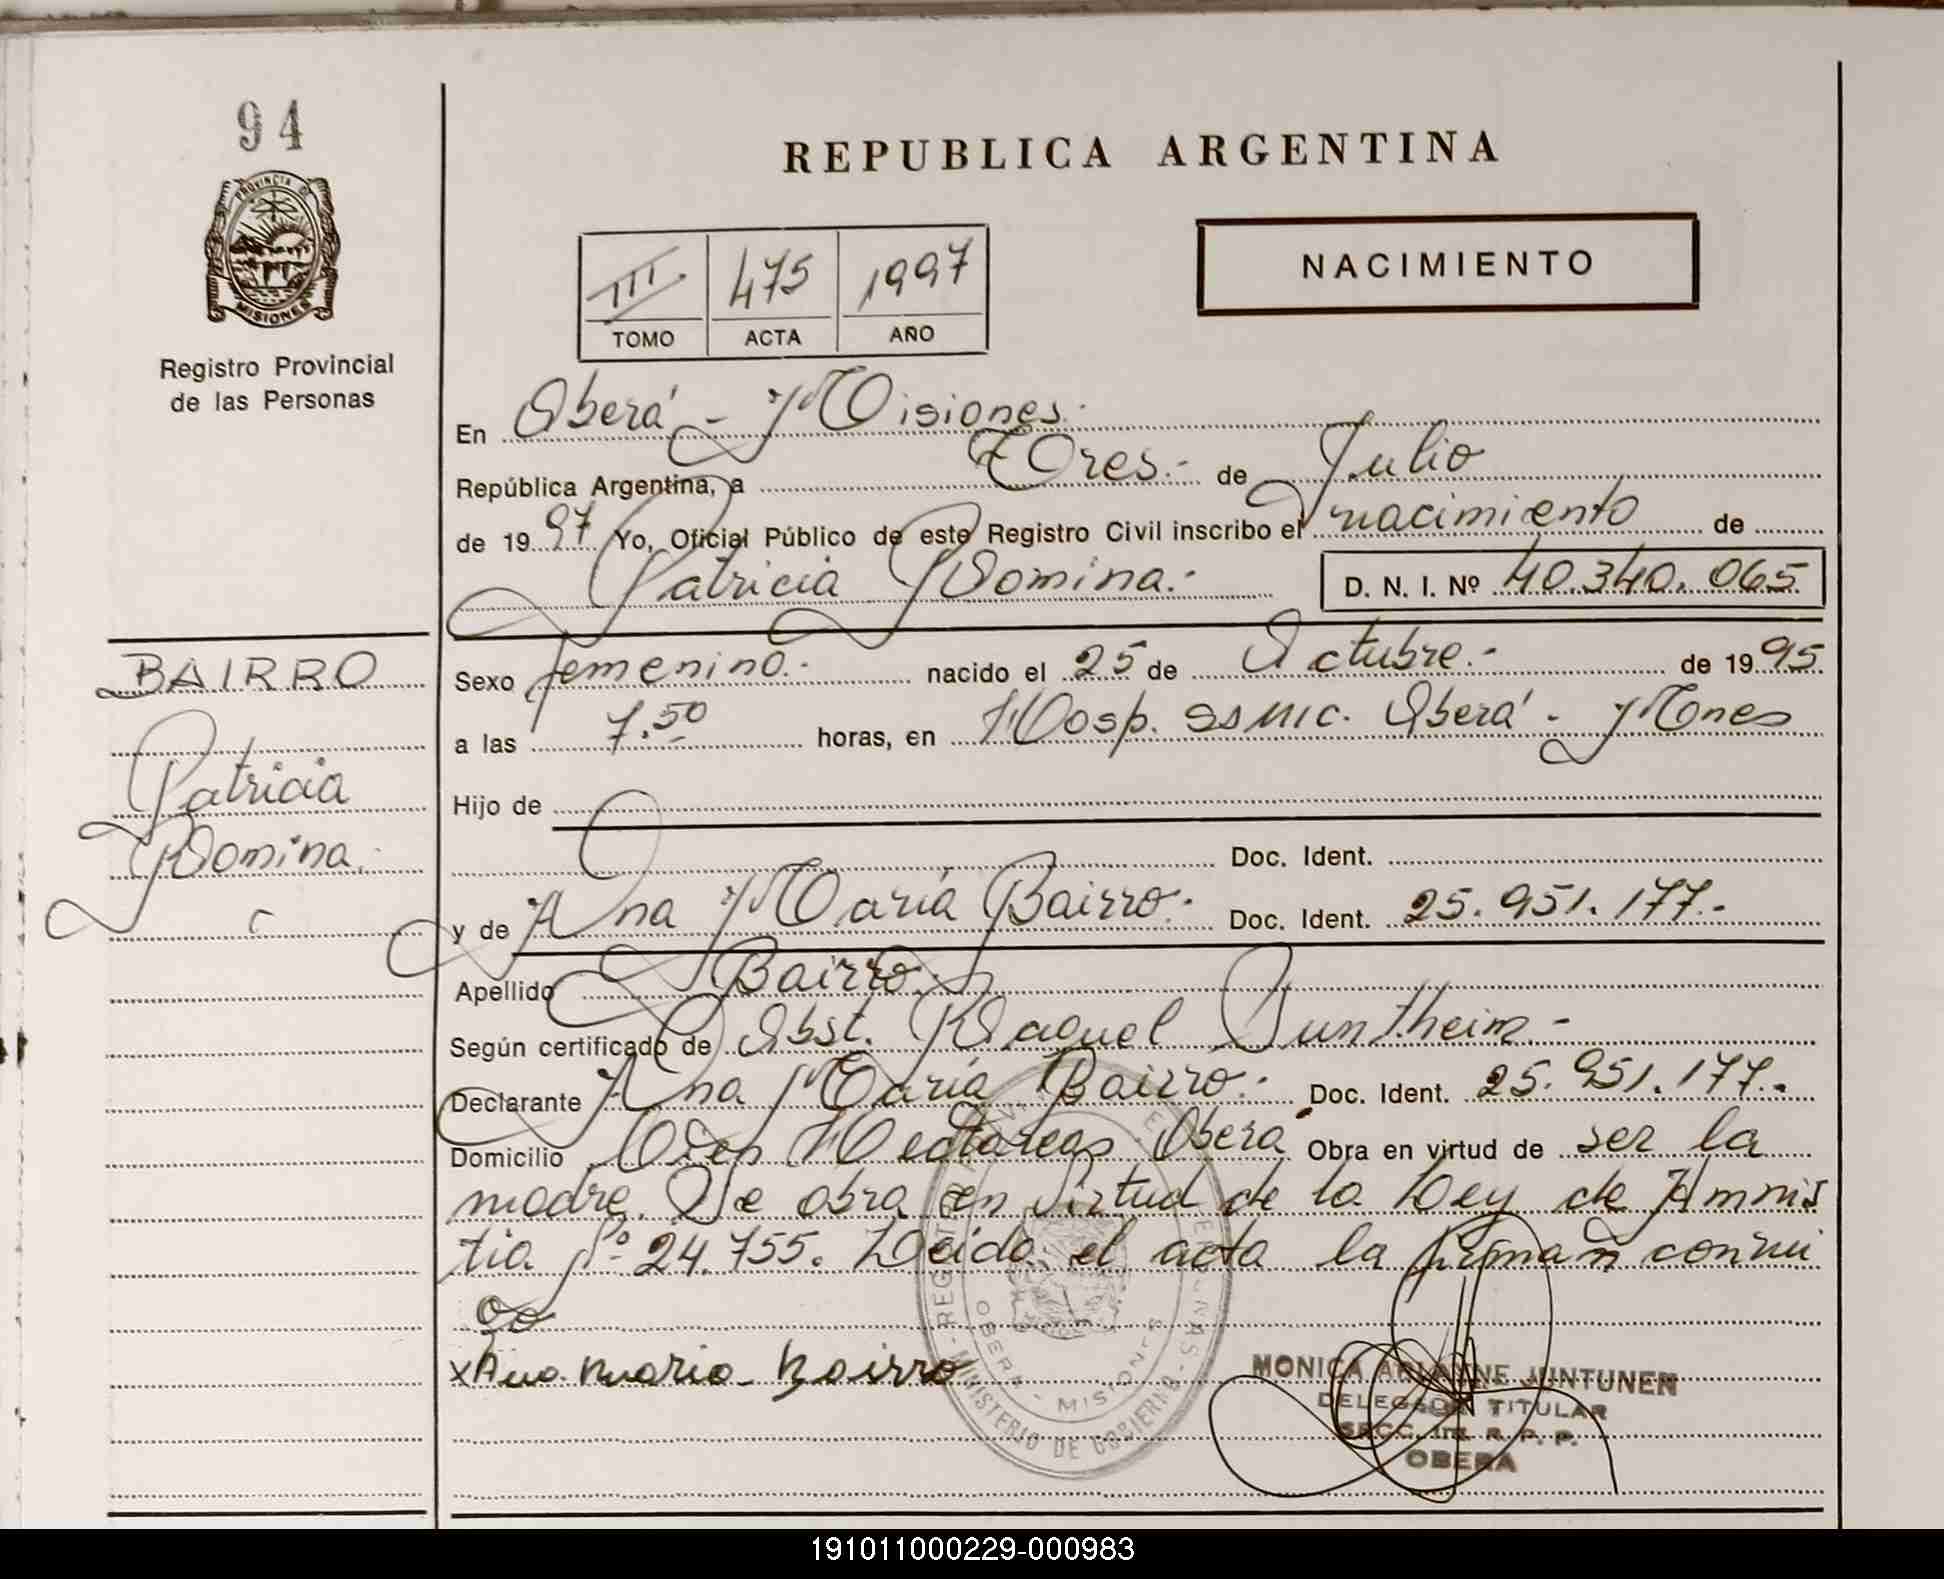 94
PROVINCIA D
MISIONES
Registro Provincial
de las Personas
REPUBLICA ARGENTINA
III 475 1997
TOMO ACTA AÑO
NACIMIENTO
En Oberá - Misiones.
República Argentina, a Tres.- de Julio
de 1997 Yo, Oficial Público de este Registro Civil inscribo el nacimiento de
Patricia Romina.- D. N. I. Nº 40.340.065
BAIRRO
Patricia
Romina.-
Sexo femenino.- nacido el 25 de Octubre.- de 1995
a las 7.50 horas, en Hosp. SSMIC. Oberá - Mones
Hijo de
Doc. Ident.
y de Ana María Bairro.- Doc. Ident. 25.951.177.-
Apellido Bairro.-
Según certificado de Obst. Raquel Suntheim.-
Declarante Ana María Bairro.- Doc. Ident. 25.951.177.-
Domicilio Cien Hectareas, Oberá Obra en virtud de ser la
madre. Se obra en virtud de la Ley de Amnis
tia Nº 24.755. Leida el acta la firman conmi
go
x Ana Maria Bairro
MINISTERIO DE GOBIERNO
OBERA - MISIONES
MONICA ARIANNE JUNTUNEN
DELEGADA TITULAR
SECC. Int. R. P. P.
OBERA
191011000229-000983